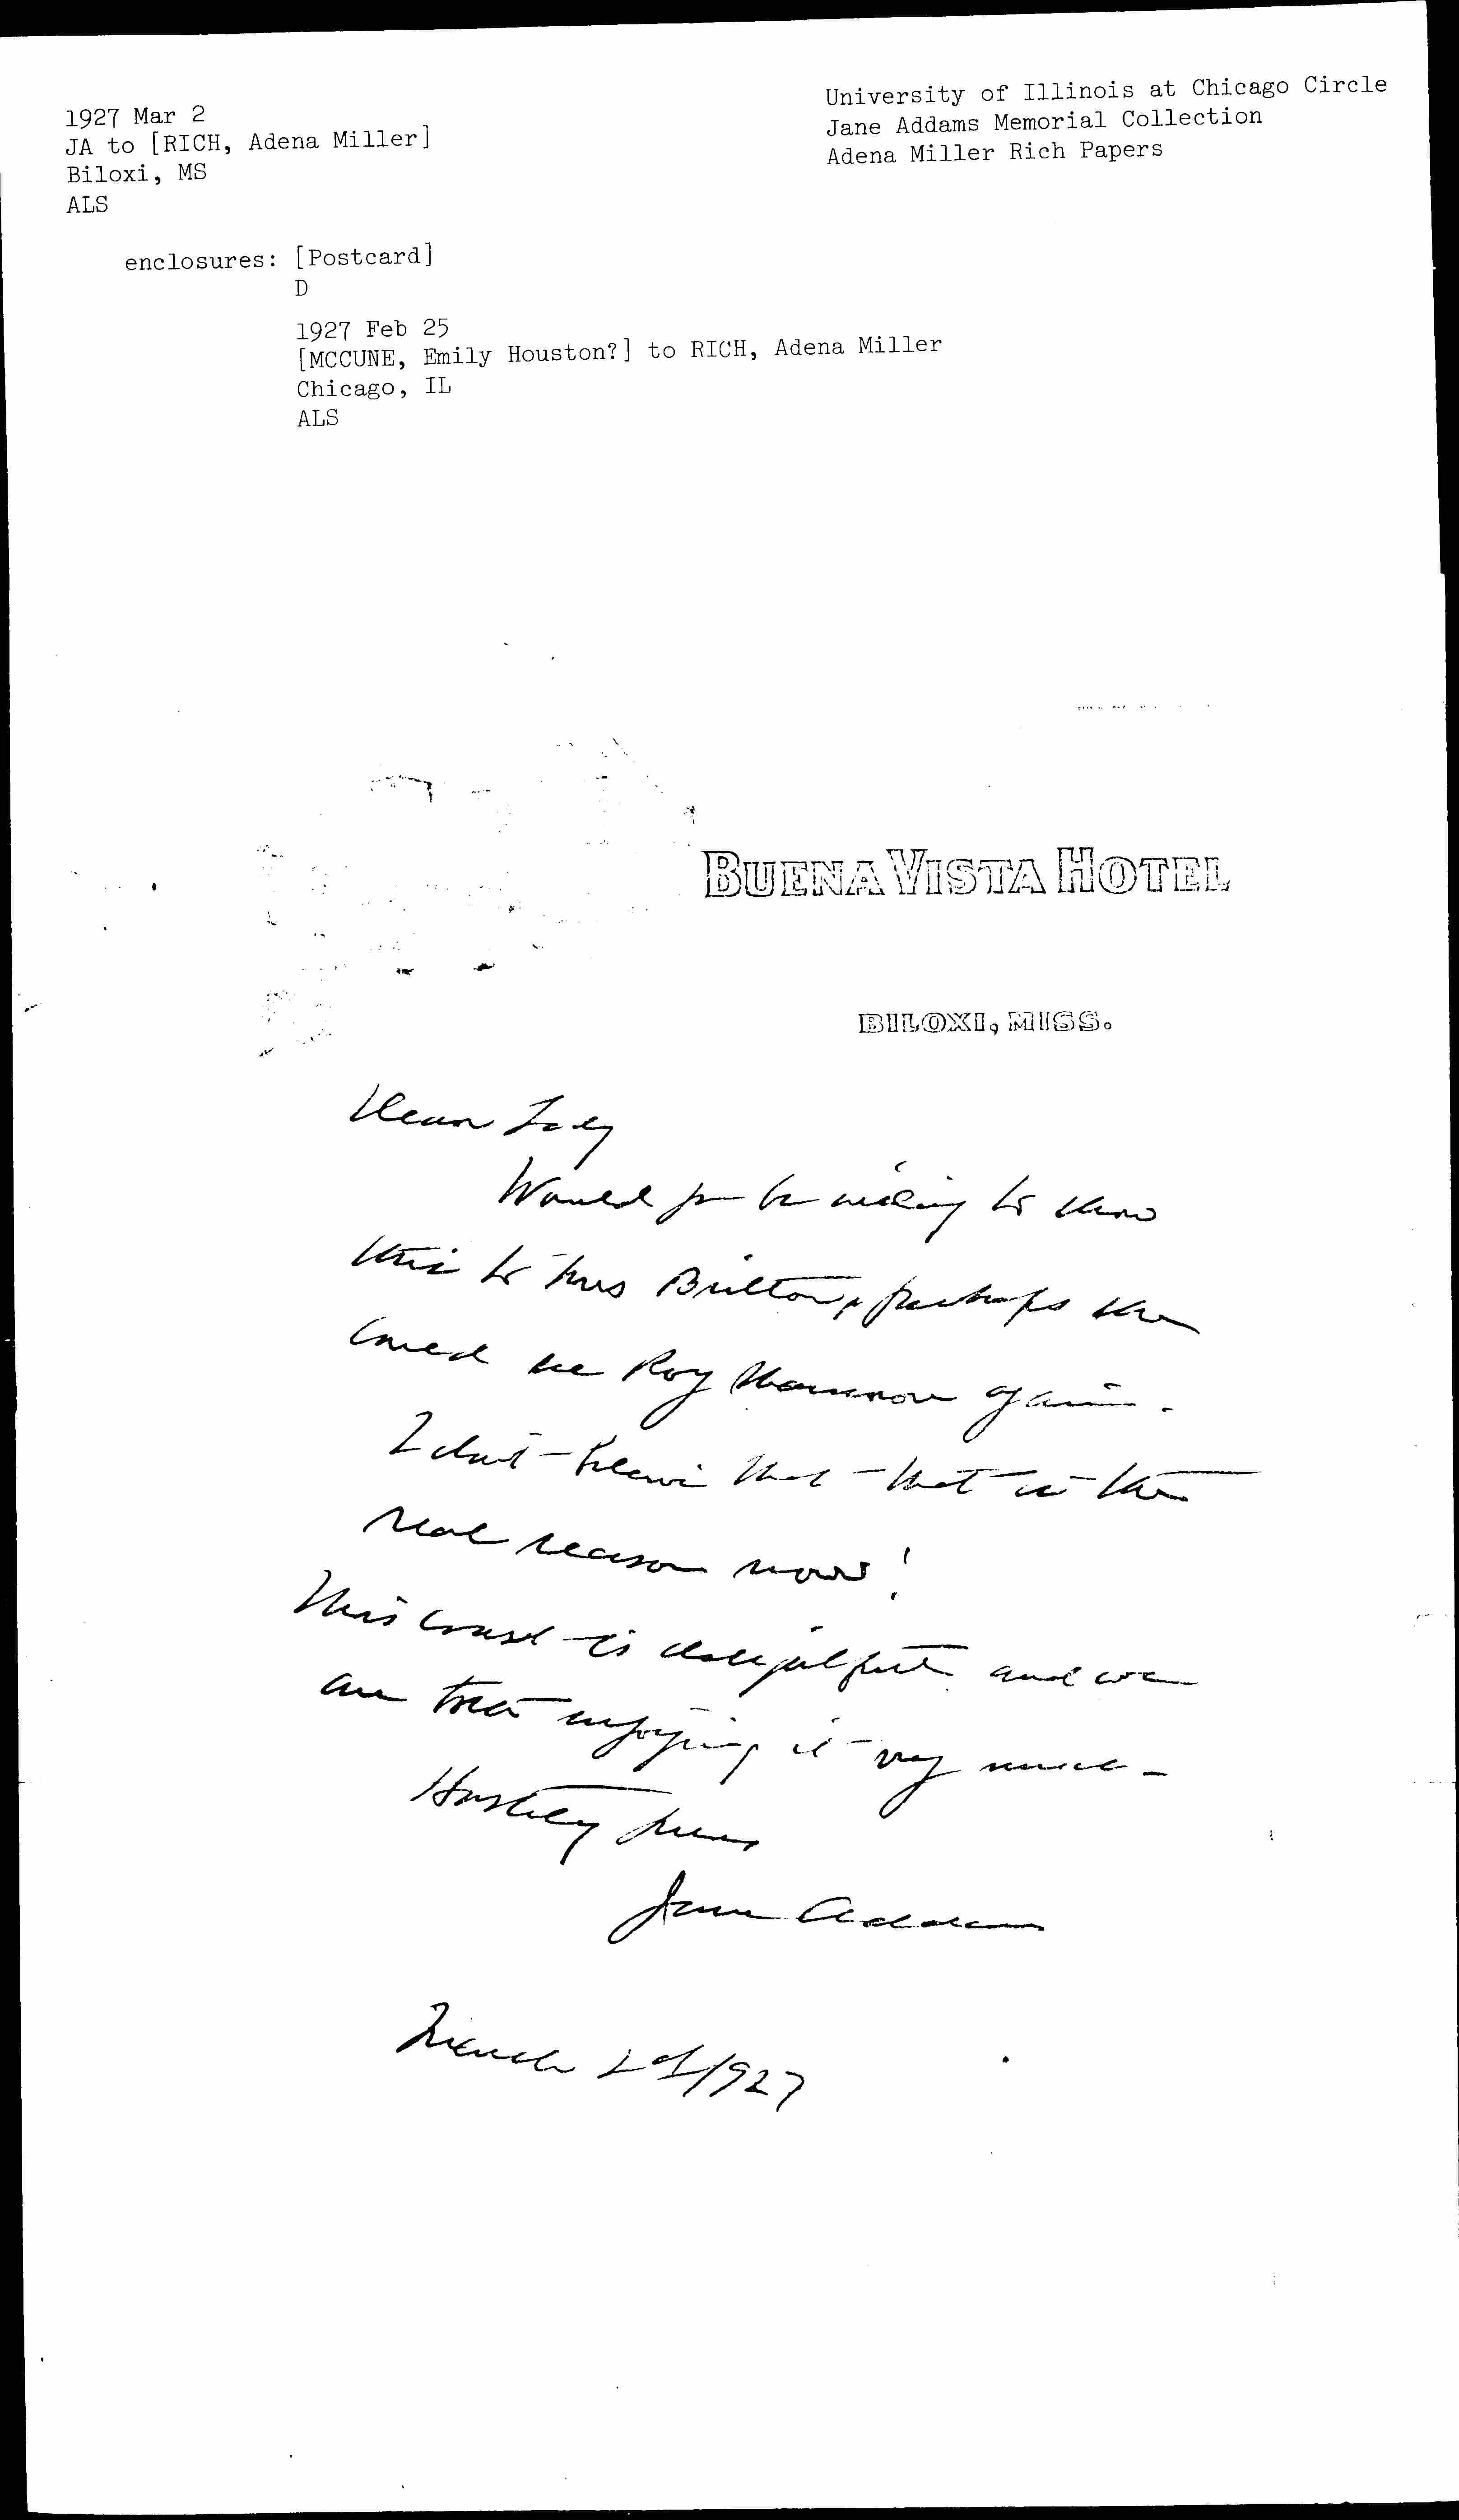 1927 Mar 2
JA to [RICH, Adena Miller]
Biloxi, MS
ALS
University of Illinois at Chicago Circle
Jane Addams Memorial Collection
Adena Miller Rich Papers
enclosures: [Postcard]
D
1927 Feb 25
[MCCUNE, Emily Houston?] to RICH, Adena Miller
Chicago, IL
ALS
BUENA VISTA HOTEL
BILOXI, MISS.
Dear Lady
Would you be willing to show
this to Mrs Britton, perhaps she
could see Roy again.
I don't believe that that is the
real reason now!
This coast is delightful and we
are both enjoying it very much -
Hastily yours
Jane Addams
March 2d 1927